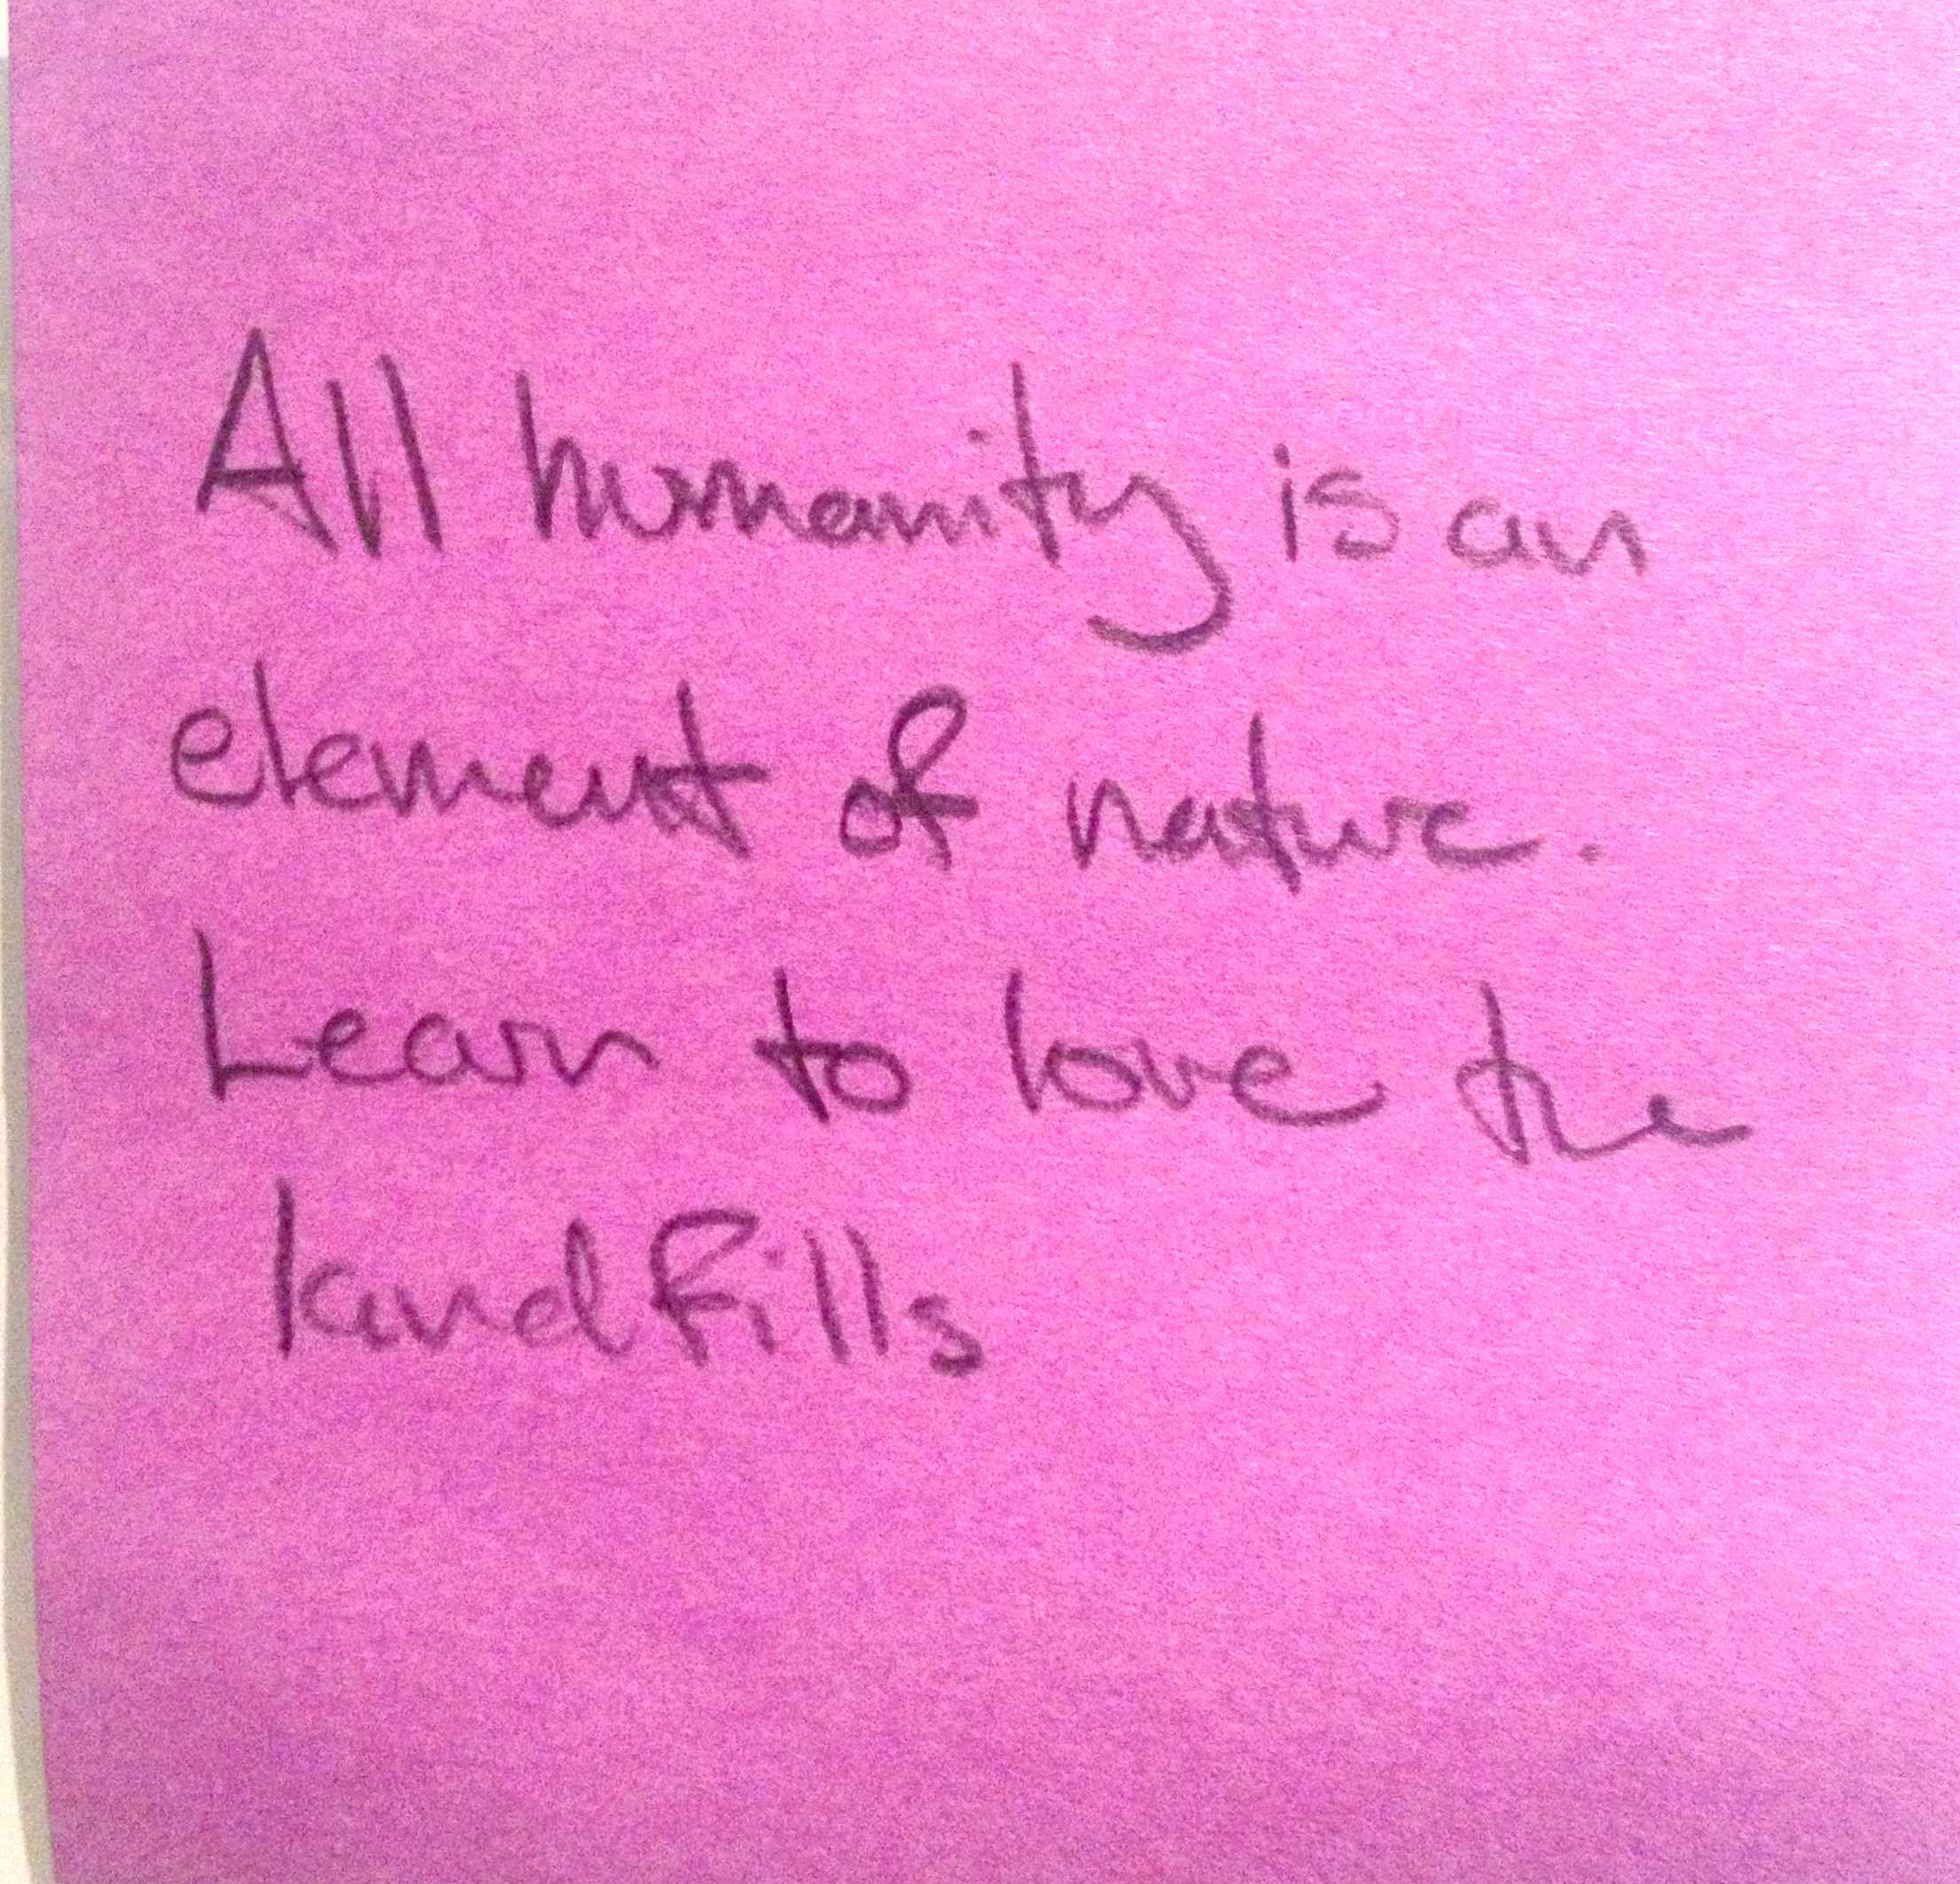 All humanity is an
element of nature.
Learn to love the
landfills